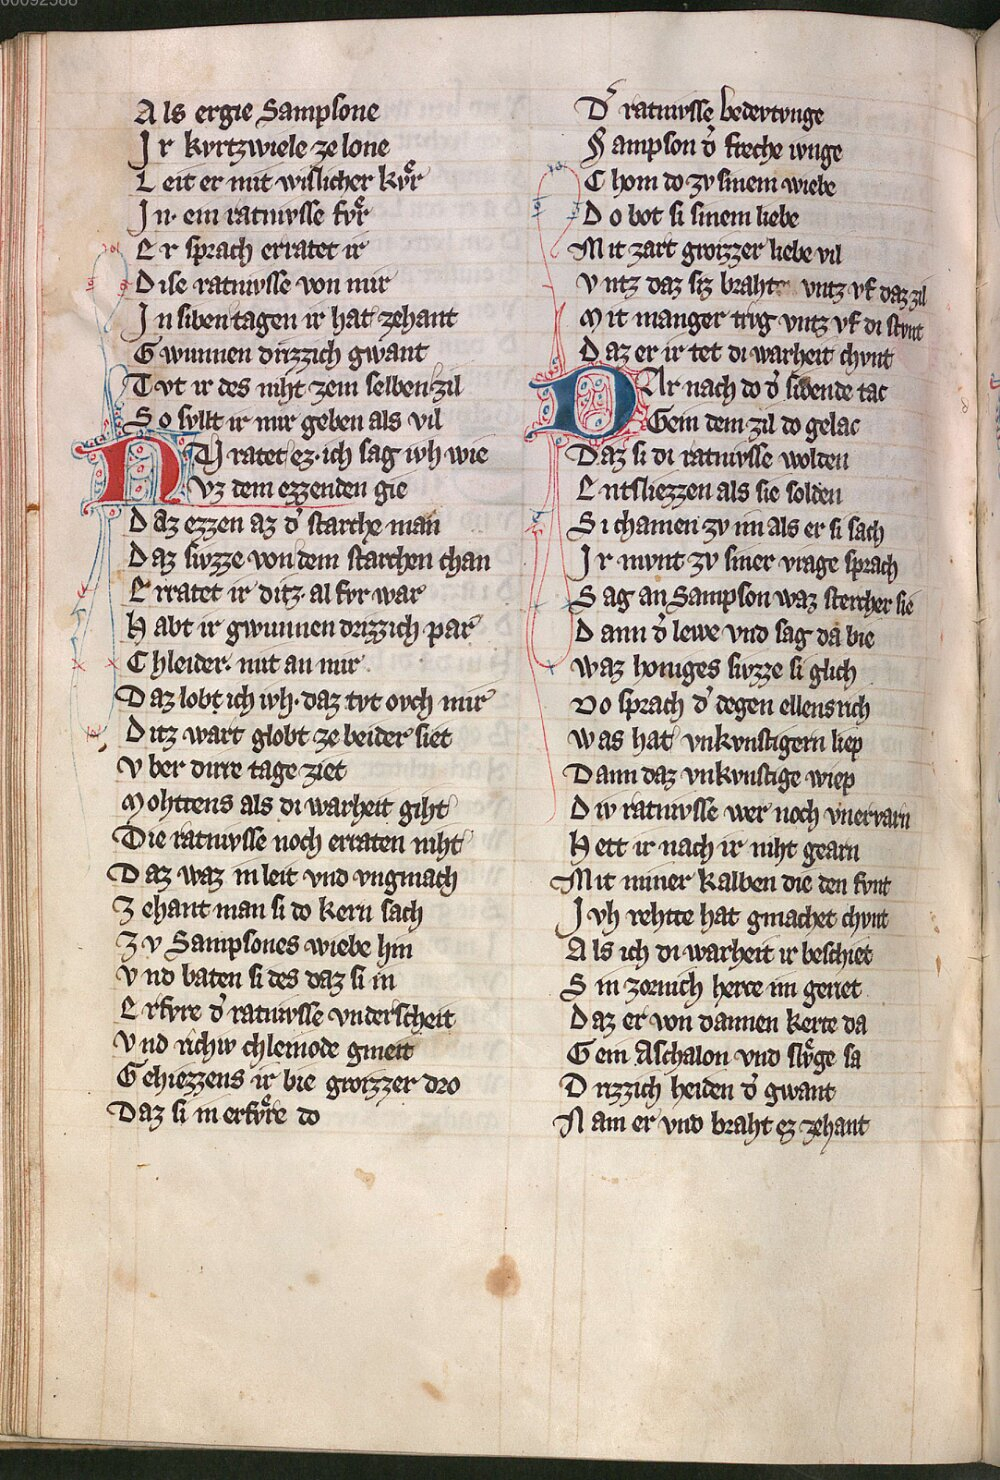 00092588
Als ergie Sampsone
Ir kvrtzwiele ze lone
Leit er mit wislicher kvͤr
In· ein ratnvsse fvͤr
Er sprach erratet ir
Dise ratnvsse von mir
In siben tagen ir hat zehant
Gwunnen drizzich gwant
Tvt ir des niht zem selben zil
So svlt ir mir geben als vil
NV ratet ez· ich sag ivh wie
Vz dem ezzenden gie
Daz ezzen az dˀ starche man
Daz svzze von dem starchen chan
Erratet ir ditz al fvr war
Habt ir gwunnen drizzich par
Chleider· mit an mir
Daz lobt ich ivh· daz tvt ovch mir
Ditz wart globt ze beider siet
Vber dirre tage ziet
Mohttens als di warheit giht
Die ratnvsse noch erraten niht
Daz waz in leit vnd vngmach
Zehant man si do kern sach
Zv Sampsones wiebe hin
Vnd baten si des daz si in
Erfvre dˀ ratnvsse vnderscheit
Vnd richiv chleinode gmeit
Gehiezzens ir bie groizzer dro
Daz si in erfvͤre do
Dˀ ratnvsse bedevtvnge
Sampson dˀ freche ivnge
Chom do zv sinem wiebe
Do bot si sinem liebe
Mit zart groizzer liebe vil
Vntz daz siz braht vntz vf daz zil
Mit manger trvg vntz vf di stvnt
Daz er ir tet di warheit chvnt
DAr nach do dˀ sibende tac
Gein dem zil do gelac
Daz si di ratnvsse wolden
Entsliezzen als sie solden
Si chamen zv im als er si sach
Ir mvnt zv siner vrage sprach
Sag an Sampson waz stercher sie
Dann dˀ lewe vnd sag da bie
Waz honiges svzze si glich
Do sprach dˀ degen ellens rich
Was hat vnkvnstigern liep
Dann daz vnkvnstige wiep
Div ratnvsse wer noch vnervarn
Hett ir nach ir niht gearn
Mit miner kalben die den fvnt
Ivh rehtte hat gmachet chvnt
Als ich di warheit ir beschiet
Sin zornich herce im geriet
Daz er von dannen kerte da
Gein Aschalon vnd slvͤge sa
Drizzich heiden dˀ gwant
Nam er vnd braht ez zehant